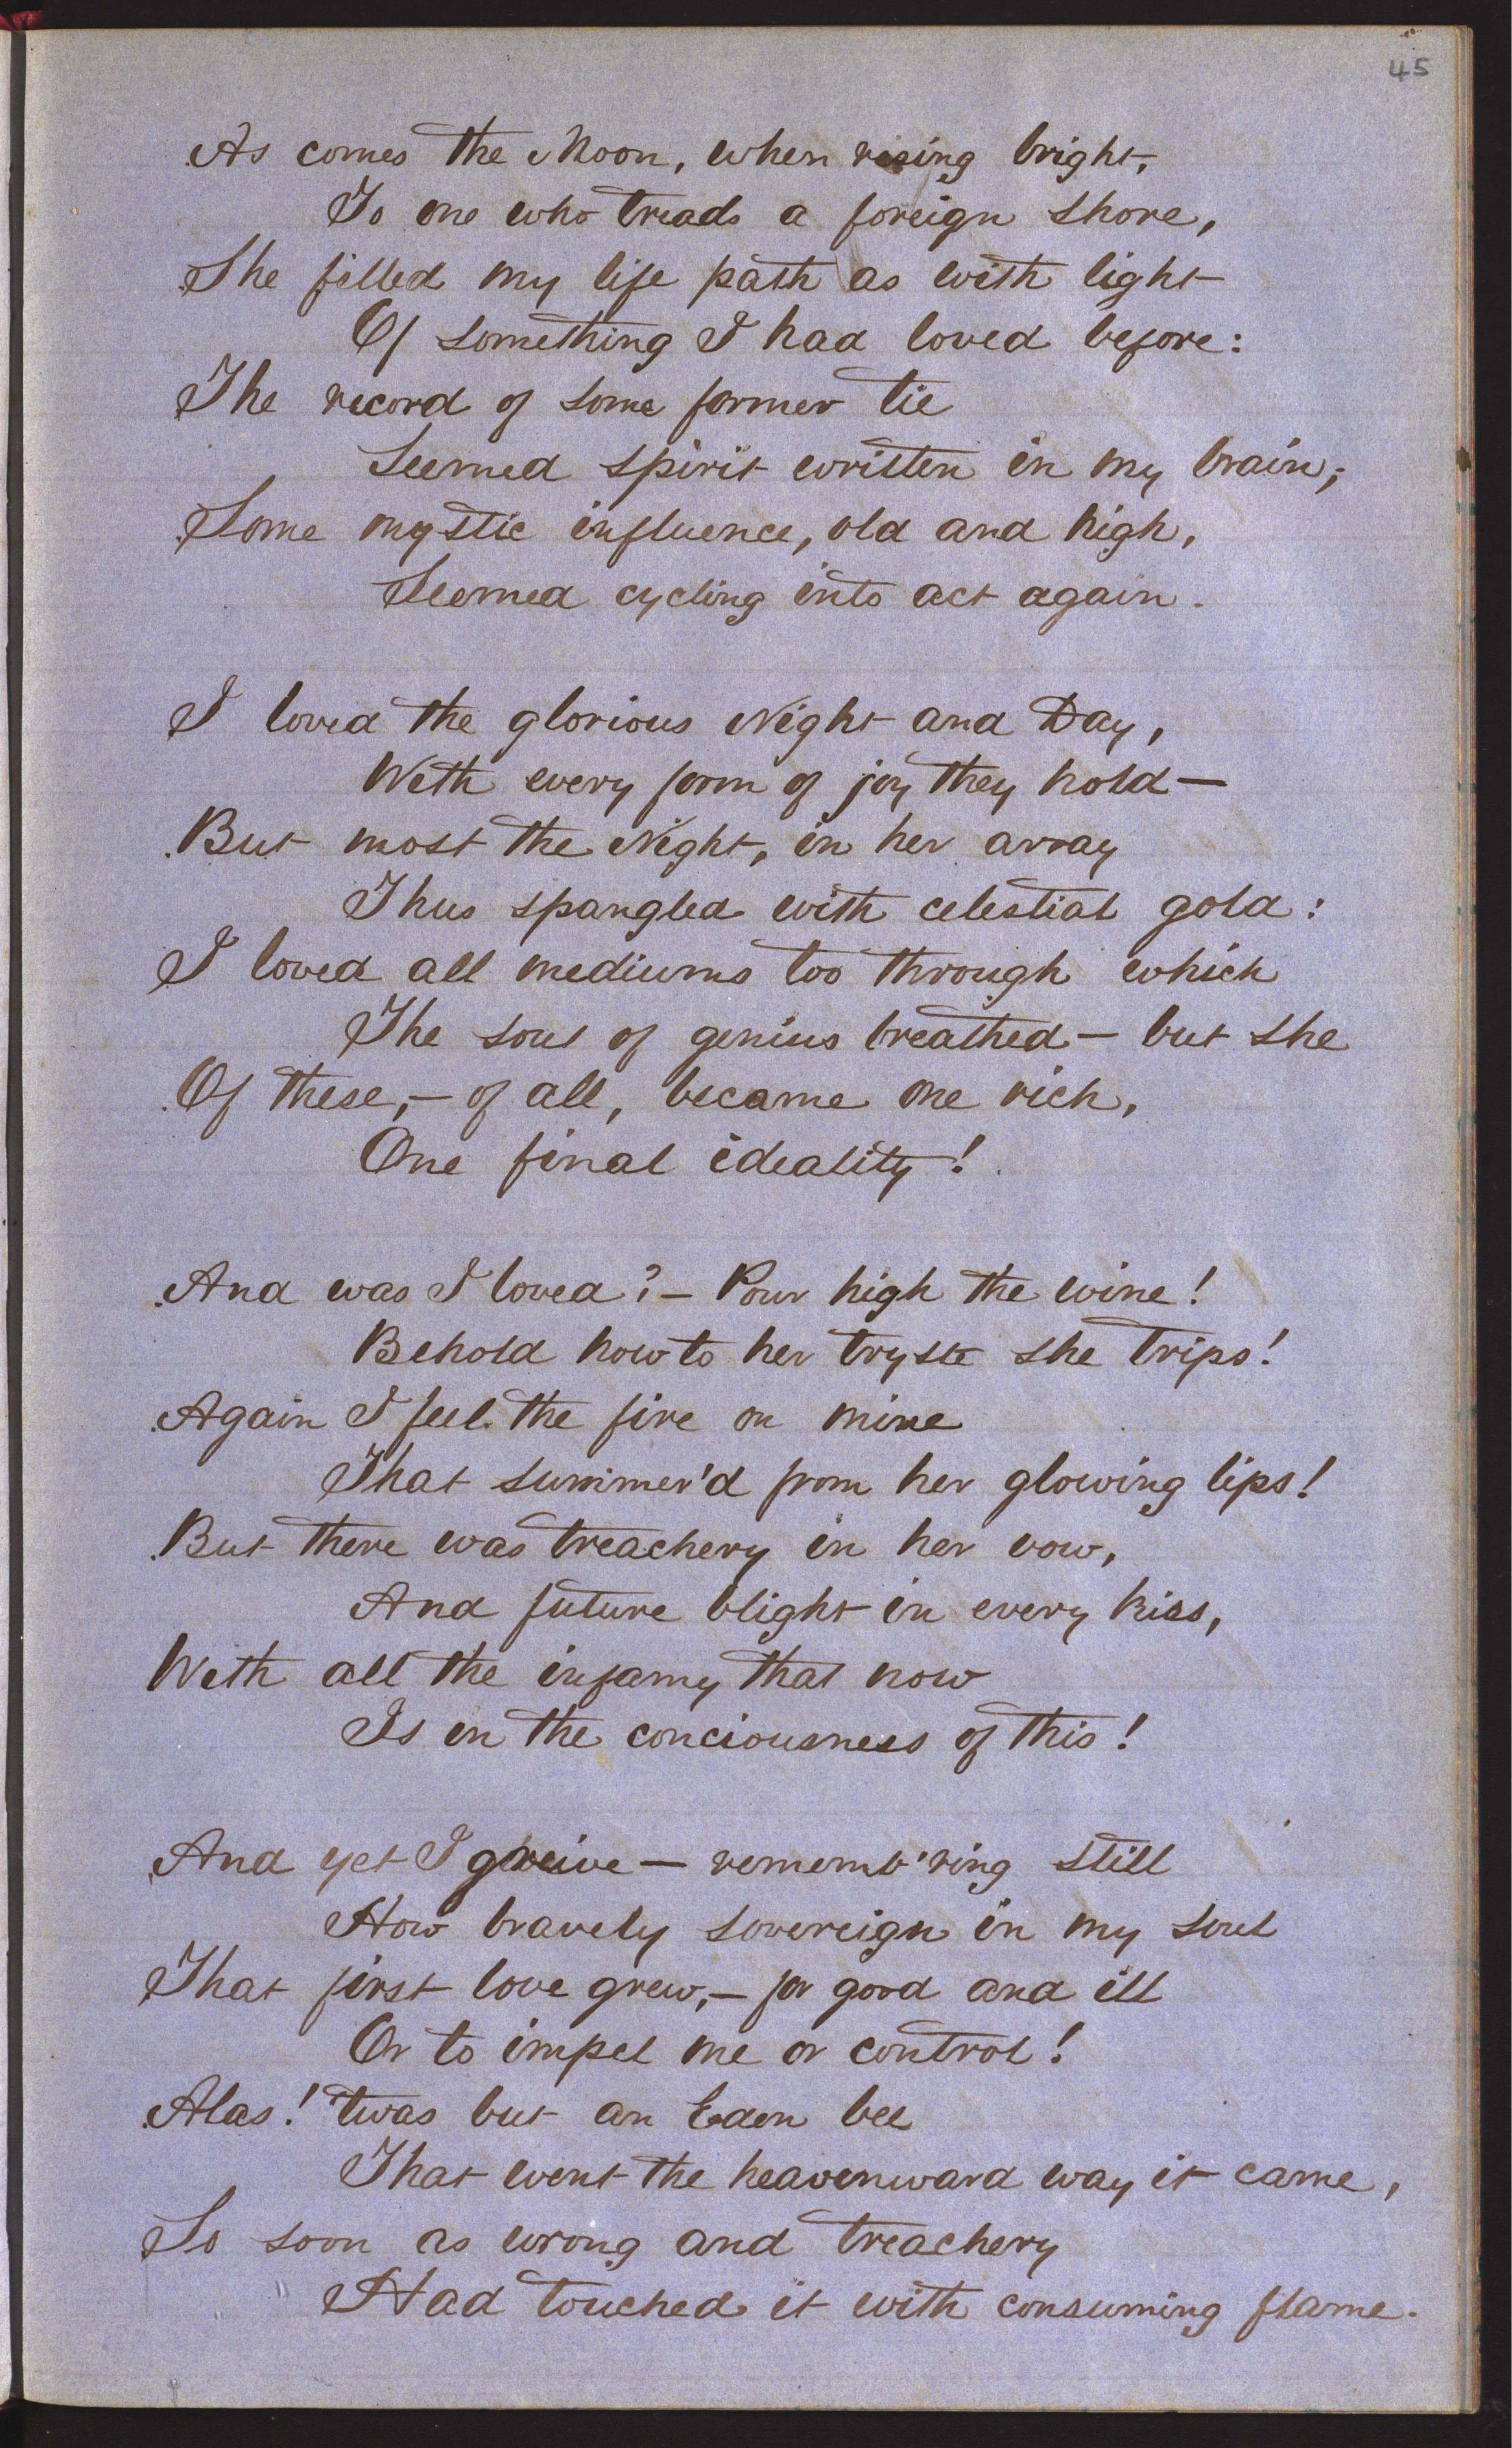 45
As comes the Moon, when rising bright,
To one who treads a foreign shore,
She filled my life path as with light
Of something I had loved before:
The record of some former tie
Seemed spirit written in my brain;
Some mystic influence, old and high,
Seemed cycling into act again.
I loved the glorious Night and Day,
With every form of joy they hold—
But most the Night, in her array
Thus spangled with celestial gold:
I loved all mediums too through which
The soul of genius breathed— but she
Of these,— of all, became one rich,
One final ideality!
And was I loved?— Pour high the wine!
Behold how to her tryste she trips!
Again I feel the fire on mine
That summer'd from her glowing lips!
But there was treachery in her vow,
And future blight in every kiss,
With all the infamy that now
Is in the conciousness of this!
And yet I greive— rememb'ring still
How bravely sovereign in my soul
That first love grew,— for good and ill
Or to impel me or control!
Alas! 'twas but an Eden bee
That went the heavenward way it came,
So soon as wrong and treachery
Had touched it with consuming flame.